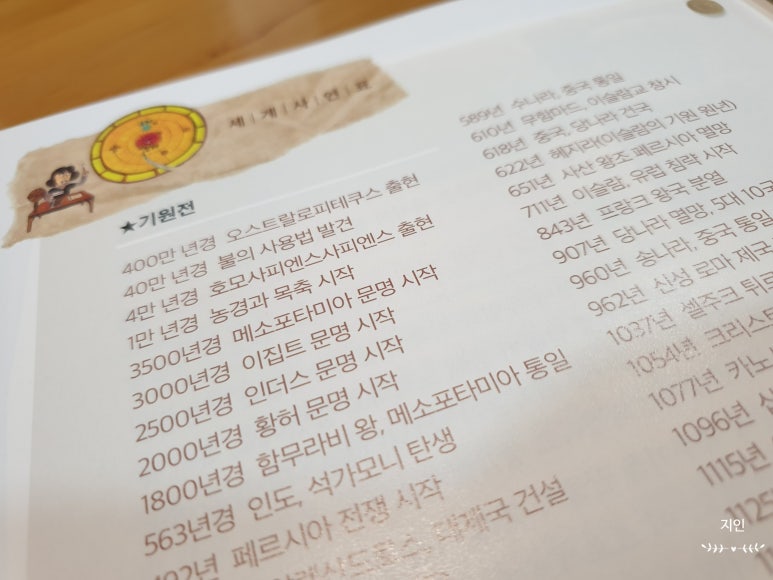 세계사연표
★기원전
400만 년경 오스트랄로피테쿠스 출현
40만 년경 불의 사용법 발견
4만 년경 호모사피엔스사피엔스 출현
1만 년경 농경과 목축 시작
3500년경 메소포타미아 문명 시작
3000년경 이집트 문명 시작
2500년경 인더스 문명 시작
2000년경 황허 문명 시작
1800년경 함무라비 왕, 메소포타미아 통일
563년경 인도, 석가모니 탄생
492년 페르시아 전쟁 시작
대제국 건설
589년 수나라, 중국 통일
610년 무함마드, 이슬람교 창시
618년 중국, 당나라 건국
622년 헤지라(이슬람의 기원 원년)
651년 사산 왕조 페르시아 멸망
711년 이슬람, 유럽 침략 시작
843년 프랑크 왕국 분열
907년 당나라 멸망, 5대 10국
960년 송나라, 중국 통일
962년 신성 로마 제국
1037년 셀주크 튀르
1054년 크리스트
1077년 카노
1096년
1115년
1125
지인